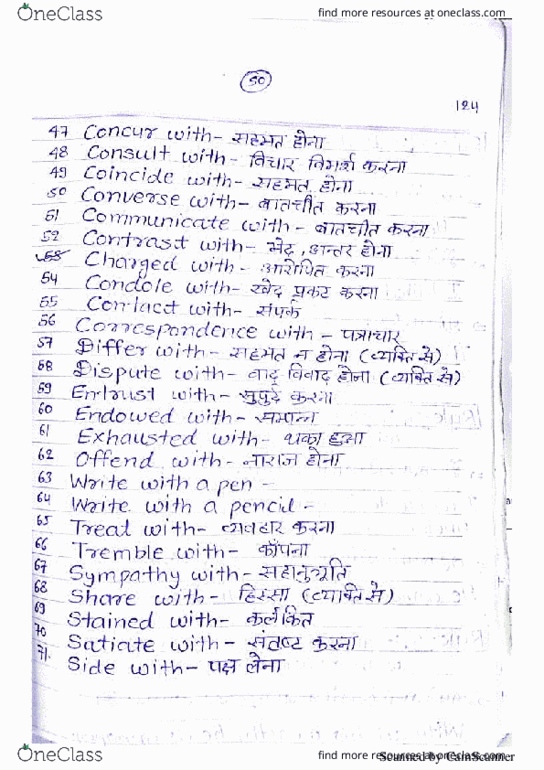 OneClass
find more resources at oneclass.com
50
124
47 Concur with- सहमत होना
48 Consult with- विचार विमर्श करना
49 Coincide with- सहमत होना
50 Converse with- बातचीत करना
51 Communicate with- बातचीत करना
52 Contrast with- भेद, अन्तर होना
53 Charged with- आरोपित करना
54 Condole with- खेद प्रकट करना
55 Contact with- संपर्क
56 Correspondence with- पत्राचार
57 Differ with- सहमत न होना (व्यक्ति से)
58 Dispute with- वाद विवाद होना (व्यक्ति से)
59 Entrust with- सुपुर्द करना
60 Endowed with- सम्पन्न
61 Exhausted with- थका हुआ
62 Offend with- नाराज होना
63 Write with a pen -
64 Write with a pencil -
65 Treat with- व्यवहार करना
66 Tremble with- काँपना
67 Sympathy with- सहानुभूति
68 Share with- हिस्सा (व्यक्ति से)
69 Stained with- कलंकित
70 Satiate with- संतुष्ट करना
71. Side with- पक्ष लेना
OneClass
find more resources at oneclass.com
Scanned by CamScanner